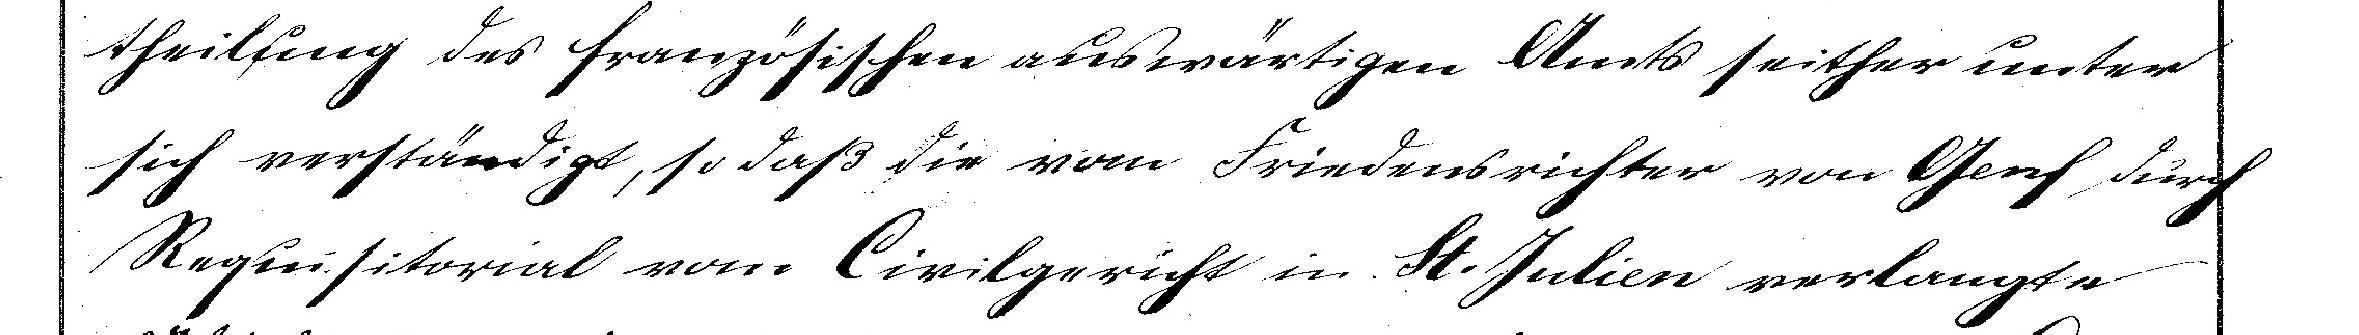 theilung des französischen auswärtigen Amts seither unter
sich verständigt, so daß die vom Friedensrichter von Genf durch
Requisitorial vom Civilgericht in St. Julien verlangte